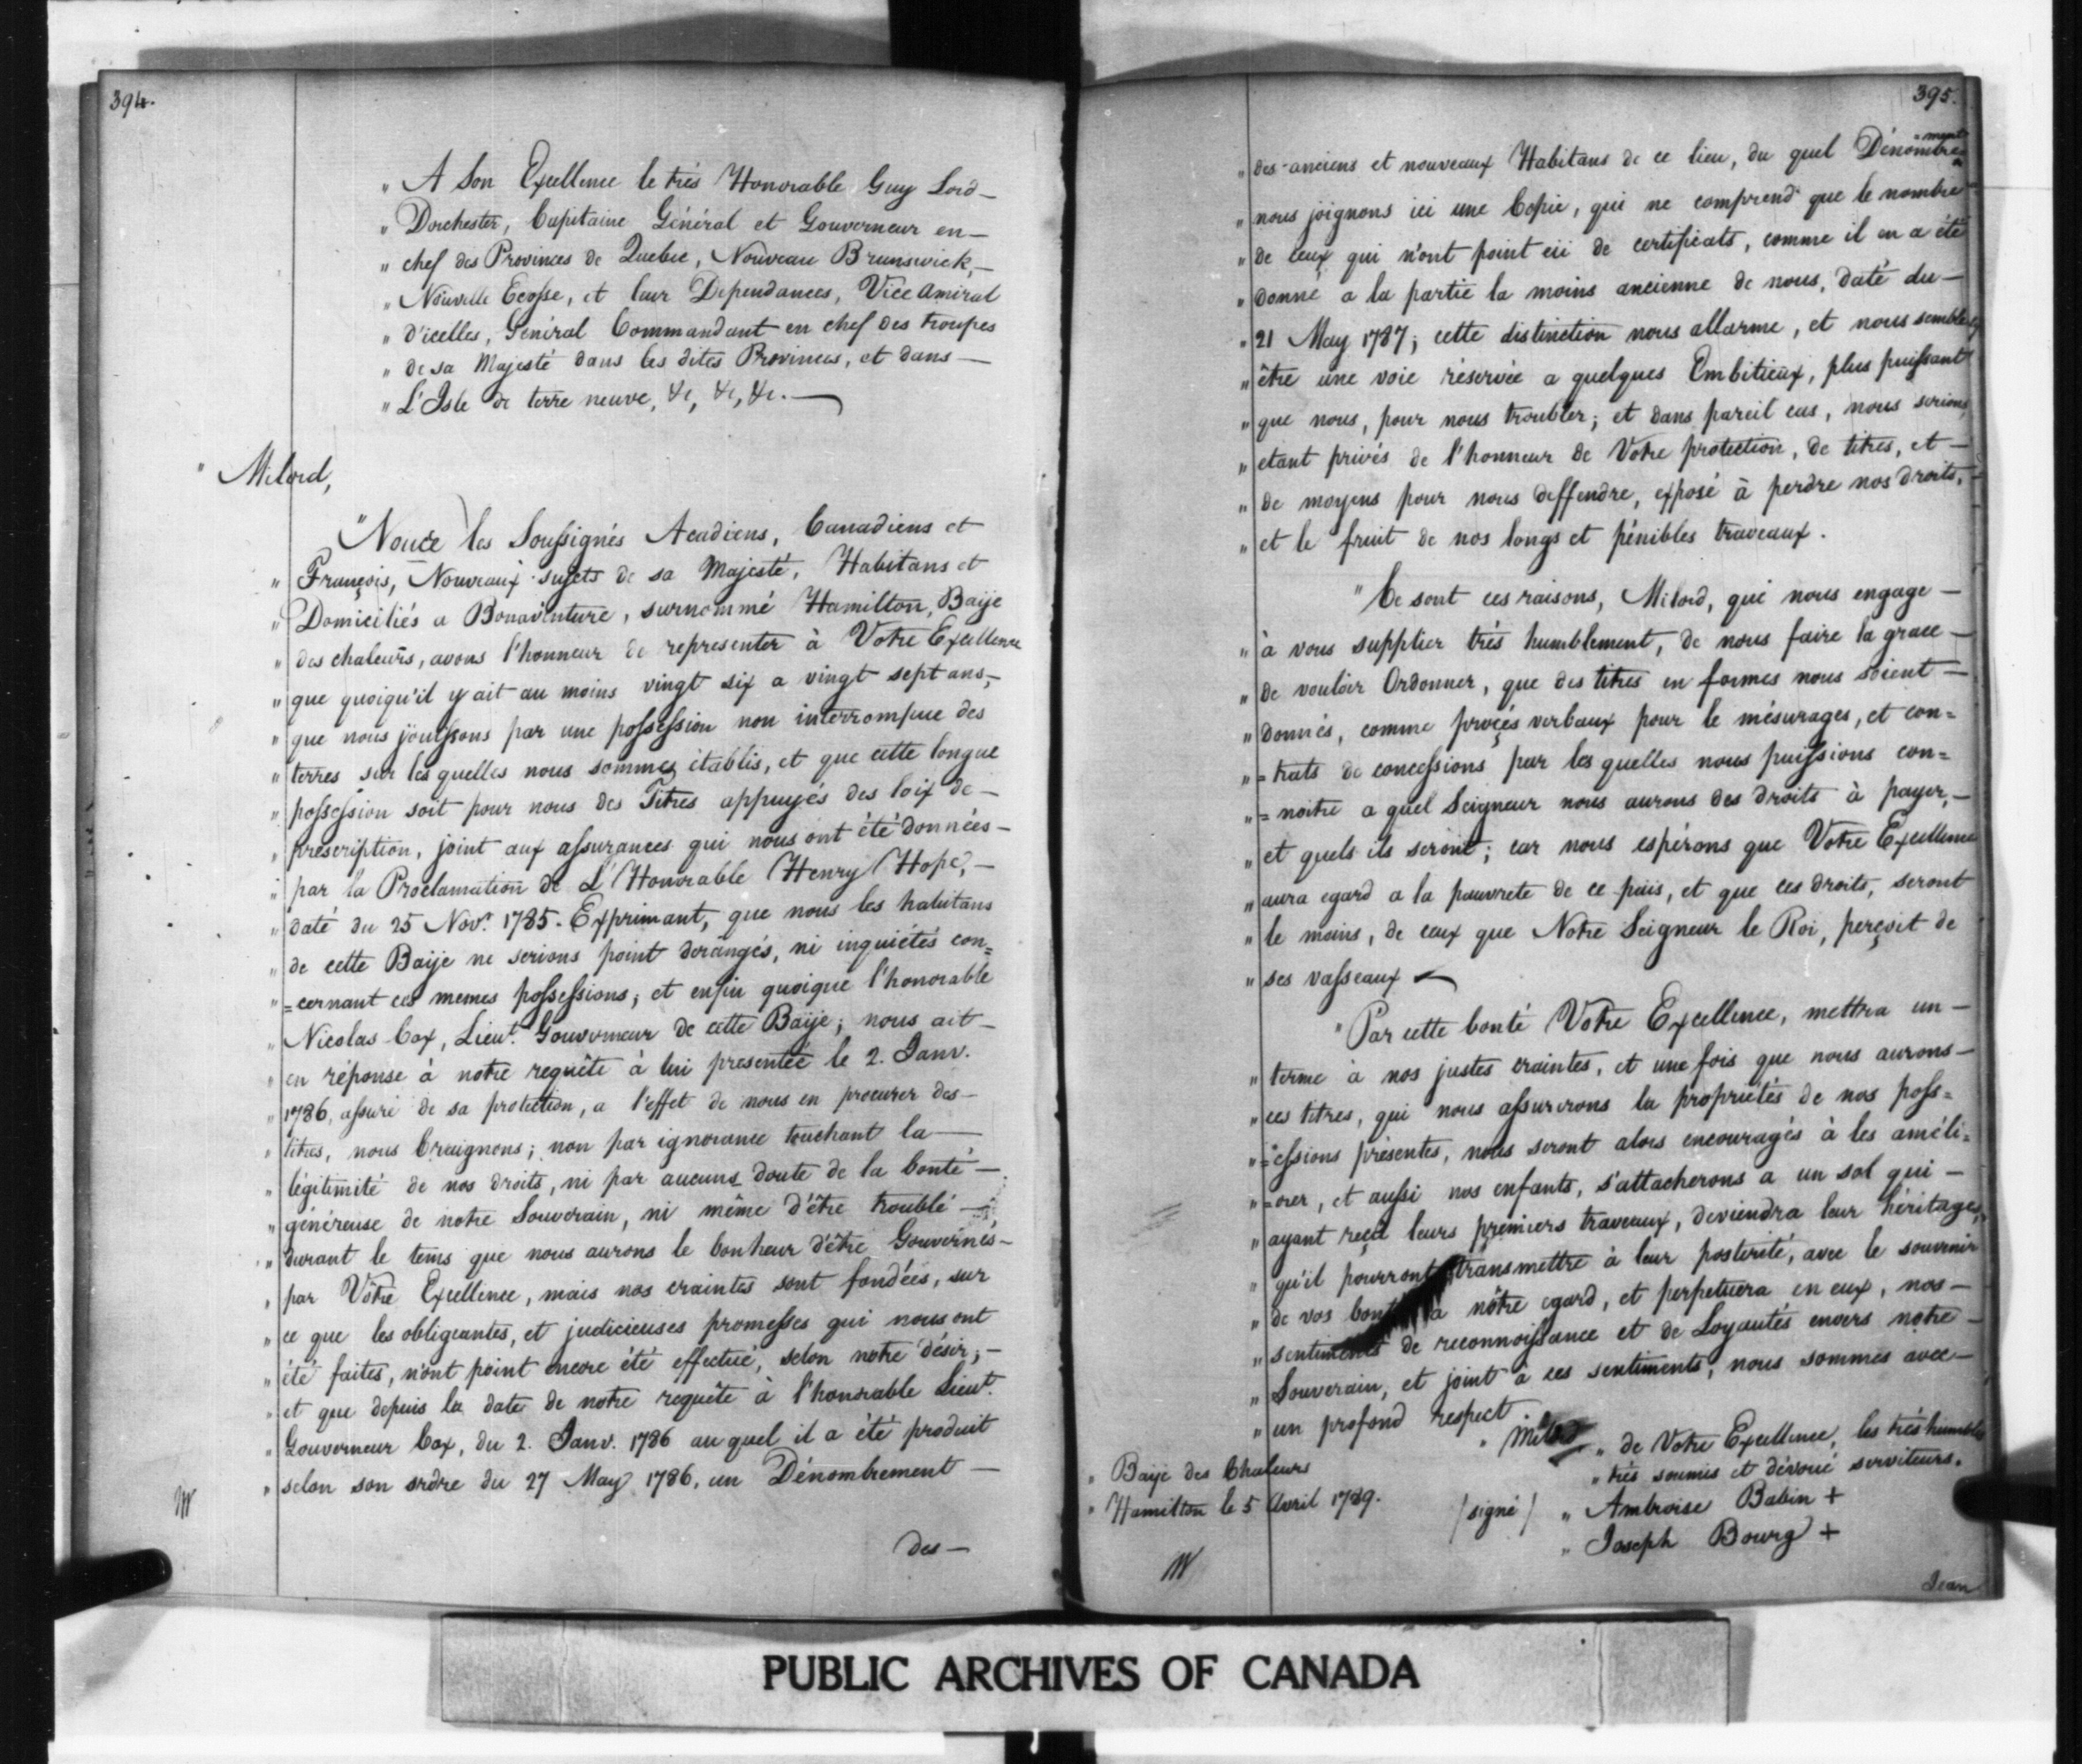 394.
" A Son Excellence le très Honorable Guy Lord –
" Dorchester, Capitaine Général et Gouverneur en –
" chef des Provinces de Quebec, Nouveau Brunswick, –
" Nouvelle Ecosse, et leur Dependances, Vice Amiral
" d'icelles, Général Commandant en chef des troupes
" de sa Majesté dans les dites Provinces, et dans –
" L'Isle de terre neuve, &c, &c, &c. –
" Milord,
" Nous les Soussignés Acadiens, Canadiens et
" François, Nouveaux sujets de sa Majesté, Habitans et
" Domiciliés a Bonaventure, surnommé Hamilton, Baije
" des chaleurs, avons l'honneur de representer à Votre Excellence
" que quoiqu'il y ait au moins vingt six a vingt sept ans, –
" que nous jouissons par une possession non interrompue des
" terres sur lesquelles nous sommes établis, et que cette longue
" possession soit pour nous des Titres appuyés des loix de –
" prescription, joint aux assurances qui nous ont été données –
" par la Proclamation de L'Honorable Henry Hope, –
" daté du 25 Novr. 1785. Exprimant, que nous les habitans
" de cette Baije ne serions point derangés, ni inquiétés con=
" =cernant ces memes possessions; et enfin quoique l'honorable
" Nicolas Cox, Lieut. Gouverneur de cette Baije; nous ait –
" en réponse à notre requête à lui presentée le 2. Janv.
" 1786, assuré de sa protection, a l'effet de nous en procurer des –
" titres, nous Craignons; non par ignorance touchant la –
" légitimité de nos droits, ni par aucuns doute de la bonté –
" généreuse de notre Souverain, ni même d'être troublé –
" durant le tems que nous aurons le bonheur d'être Gouvernés –
" par Vôtre Excellence, mais nos craintes sont fondées, sur
" ce que les obligeantes, et judicieuses promesses qui nous ont
" été faites, n'ont point encore été effectué, selon notre désir; –
" et que depuis la date de notre requête à l'honorable Lieut.
" Gouverneur Cox, du 2. Janv. 1786 auquel il a été produit
" selon son ordre du 27 May 1786, un Dénombrement –
des –
395.
" des anciens et nouveaux Habitans de ce lieu, du quel Dénombrement
" nous joignons ici une Copie, qui ne comprend que le nombre
" de ceux qui n'ont point eü de certificats, comme il en a été
" donné a la partie la moins ancienne de nous, daté du –
" 21 May 1787; cette distinction nous allarme, et nous semble
" être une voie réservée a quelques Embitieux, plus puissant
" que nous, pour nous troubler; et dans pareil cas, nous serions,
" etant privés de l'honneur de Votre protection, de titres, et –
" de moyens pour nous deffendre, exposé à perdre nos droits,
" et le fruit de nos longs et pénibles traveaux.
" Ce sont ces raisons, Milord, qui nous engage –
" à vous supplier très humblement, de nous faire la grace –
" de vouloir Ordonner, que des titres en formes nous soient –
" donnés, comme proçés verbaux pour le mésurages, et con=
" =trats de concessions par les quelles nous puissions con=
" =noitre a quel Seigneur nous aurons des droits à payer, –
" et quels ils seront; car nous espérons que Votre Excellence
" aura egard a la pauvrete de ce païs, et que ces droits, seront
" le moins, de ceux que Notre Seigneur le Roi, perçoit de
" ses vasseaux –
" Par cette bonté Votre Excellence, mettra un –
" terme à nos justes craintes, et une fois que nous aurons –
" ces titres, qui nous assurerons la propriétés de nos poss=
" =essions présentes, nous seront alors encouragés à les améli=
" =orer, et aussi nos enfants, s'attacherons a un sol qui –
" ayant reçû leurs premiers traveaux, deviendra leur héritages,
" qu'il pourront transmettre à leur posterité, avec le souvenir
" de vos bontés a nôtre egard, et perpetuera en eux, nos –
" sentiments de reconnoissance et de Loyautés envers notre –
" Souverain, et joint à ces sentiments, nous sommes avec –
" un profond respect
" Milord
" de Votre Excellence, les très humbles
" très soumis et dévoué serviteurs.
" Baije des Chaleurs
" Hamilton le 5 Avril 1789.
/signé/ " Ambroise Babin +
" Joseph Bourg +
Jean
PUBLIC ARCHIVES OF CANADA